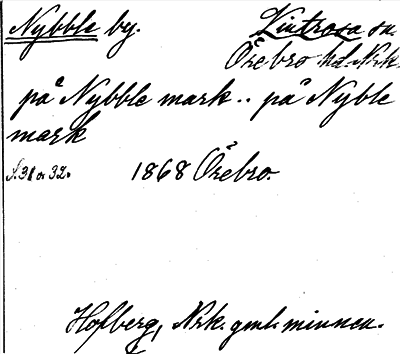 Nybble by. Vintrosa sn.
Örebro hd. Nrk.
på Nybble mark.. på Nyble
mark
s. 31 o. 32. 1868 Örebro.
Hofberg, Nrk. gml. minnen.